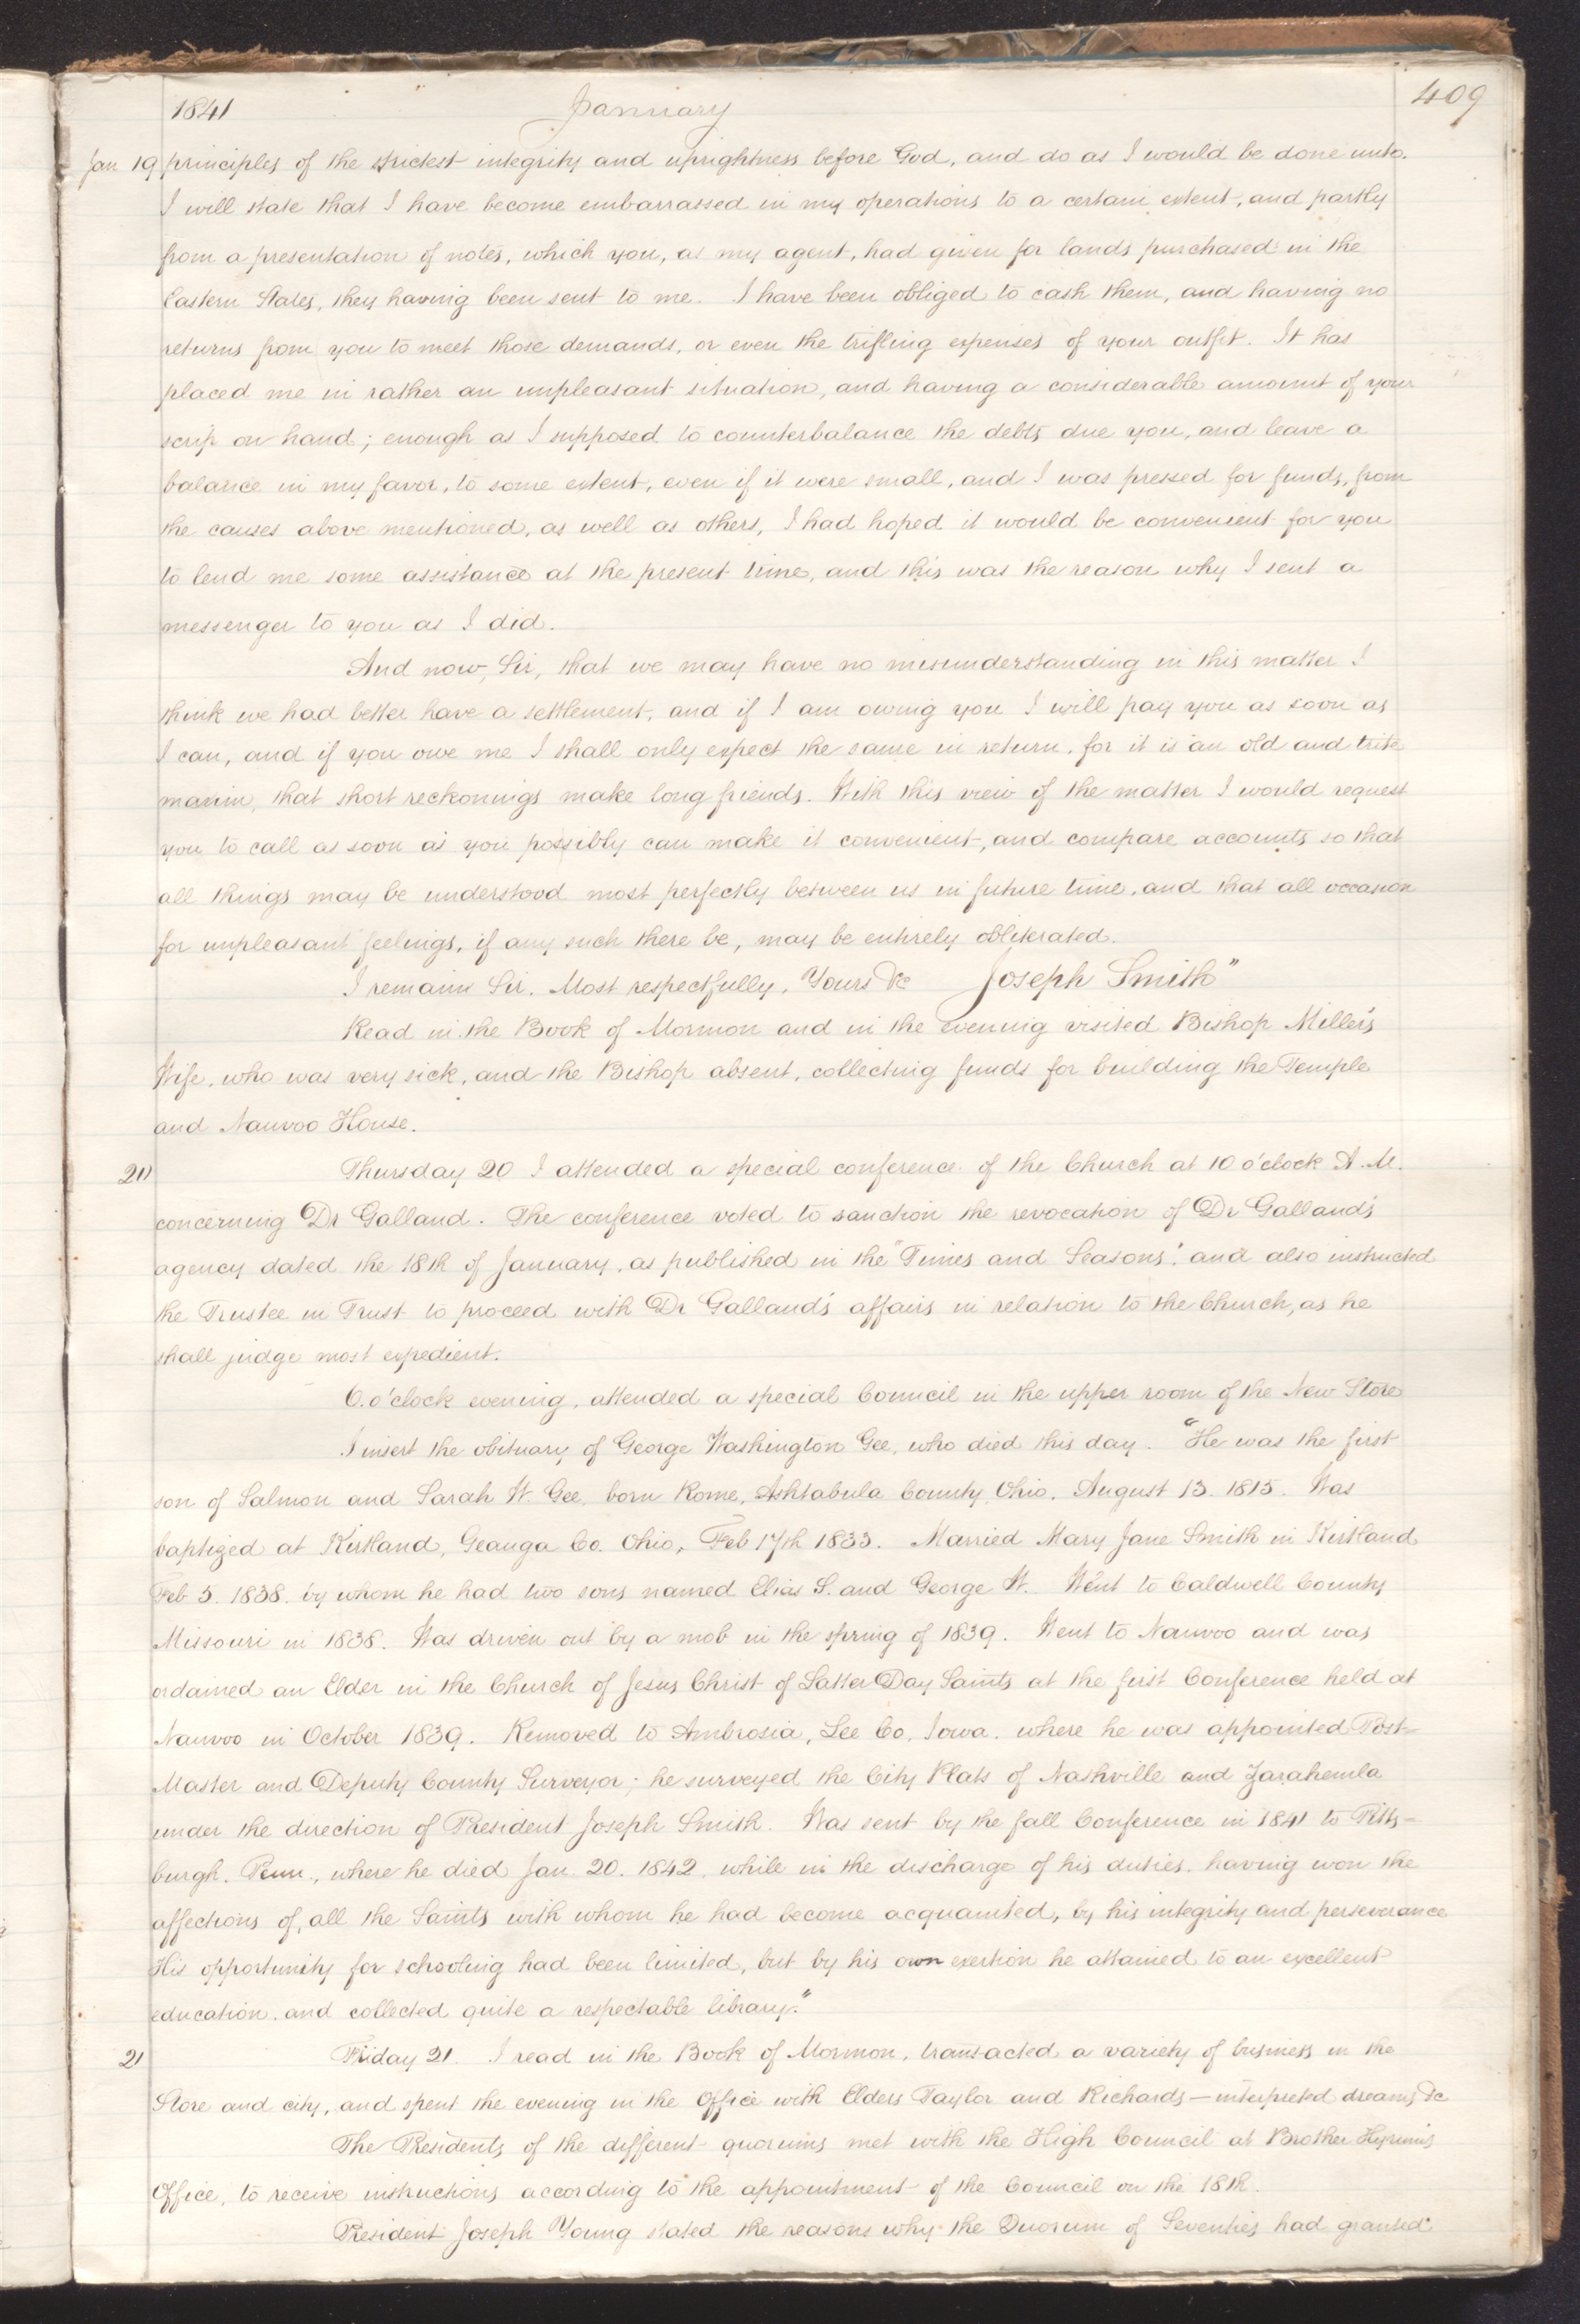 1841 January 409
Jan 19 principles of the strictest integrity and uprightness before God, and do as I would be done unto.
I will state that I have become embarrassed in my operations to a certain extent, and partly
from a presentation of notes, which you, as my agent, had given for lands purchased in the
Eastern States, they having been sent to me. I have been obliged to cash them, and having no
returns from you to meet those demands, or even the trifling expenses of your outfit. It has
placed me in rather an unpleasant situation, and having a considerable amount of your
scrip on hand; enough as I supposed to counterbalance the debts due you, and leave a
balance in my favor, to some extent, even if it were small, and I was pressed for funds, from
the causes above mentioned, as well as others, I had hoped it would be convenient for you
to lend me some assistance at the present time, and this was the reason why I sent a
messenger to you as I did.
And now, Sir, that we may have no misunderstanding in this matter I
think we had better have a settlement, and if I am owing you I will pay you as soon as
I can, and if you owe me I shall only expect the same in return, for it is an old and trite
maxim, that short reckonings make long friends. With this view of the matter I would request
you to call as soon as you possibly can make it convenient, and compare accounts so that
all things may be understood most perfectly between us in future time, and that all occasion
for unpleasant feelings, if any such there be, may be entirely obliterated.
I remain Sir. Most respectfully, Yours &c Joseph Smith"
Read in the Book of Mormon and in the evening visited Bishop Miller's
Wife, who was very sick, and the Bishop absent, collecting funds for building the Temple
and Nauvoo House.
20 Thursday 20 I attended a special conference of the Church at 10 o'clock A.M.
concerning Dr Galland. The conference voted to sanction the revocation of Dr Galland's
agency dated the 18th of January, as published in the "Times and Seasons". and also instructed
the Trustee in Trust to proceed with Dr Galland's affairs in relation to the Church, as he
shall judge most expedient.
6. o'clock evening, attended a special Council in the upper room of the New Store
I insert the obituary of George Washington Gee, who died this day. "He was the first
son of Salmon and Sarah W. Gee, born Rome, Ashtabula County, Ohio, August 13. 1815. Was
baptized at Kirtland, Geauga Co. Ohio, Feb 17th 1833. Married Mary Jane Smith in Kirtland
Feb 5. 1838. by whom he had two sons named Elias S. and George W. Went to Caldwell County
Missouri in 1838. Was driven out by a mob in the spring of 1839. Went to Nauvoo and was
ordained an Elder in the Church of Jesus Christ of Latter Day Saints at the first Conference held at
Nauvoo in October 1839. Removed to Ambrosia, Lee Co, Iowa. where he was appointed Post-
Master and Deputy County Surveyor; he surveyed the City Plats of Nashville and Zarahemla
under the direction of President Joseph Smith. Was sent by the fall Conference in 1841 to Pitts-
burgh. Penn., where he died Jan. 20. 1842. while in the discharge of his duties. having won the
affections of all the Saints with whom he had become acquainted, by his integrity and perseverance
His opportunity for schooling had been limited, but by his own exertion he attained to an excellent
education. and collected quite a respectable library."
21 Friday 21. I read in the Book of Mormon, transacted a variety of business in the
Store and city, and spent the evening in the Office with Elders Taylor and Richards—interpreted dreams &c
The Presidents of the different quorums met with the High Council at Brother Hyrum's
Office, to receive instructions according to the appointment of the Council on the 18th.
President Joseph Young stated the reasons why the Quorum of Seventies had granted